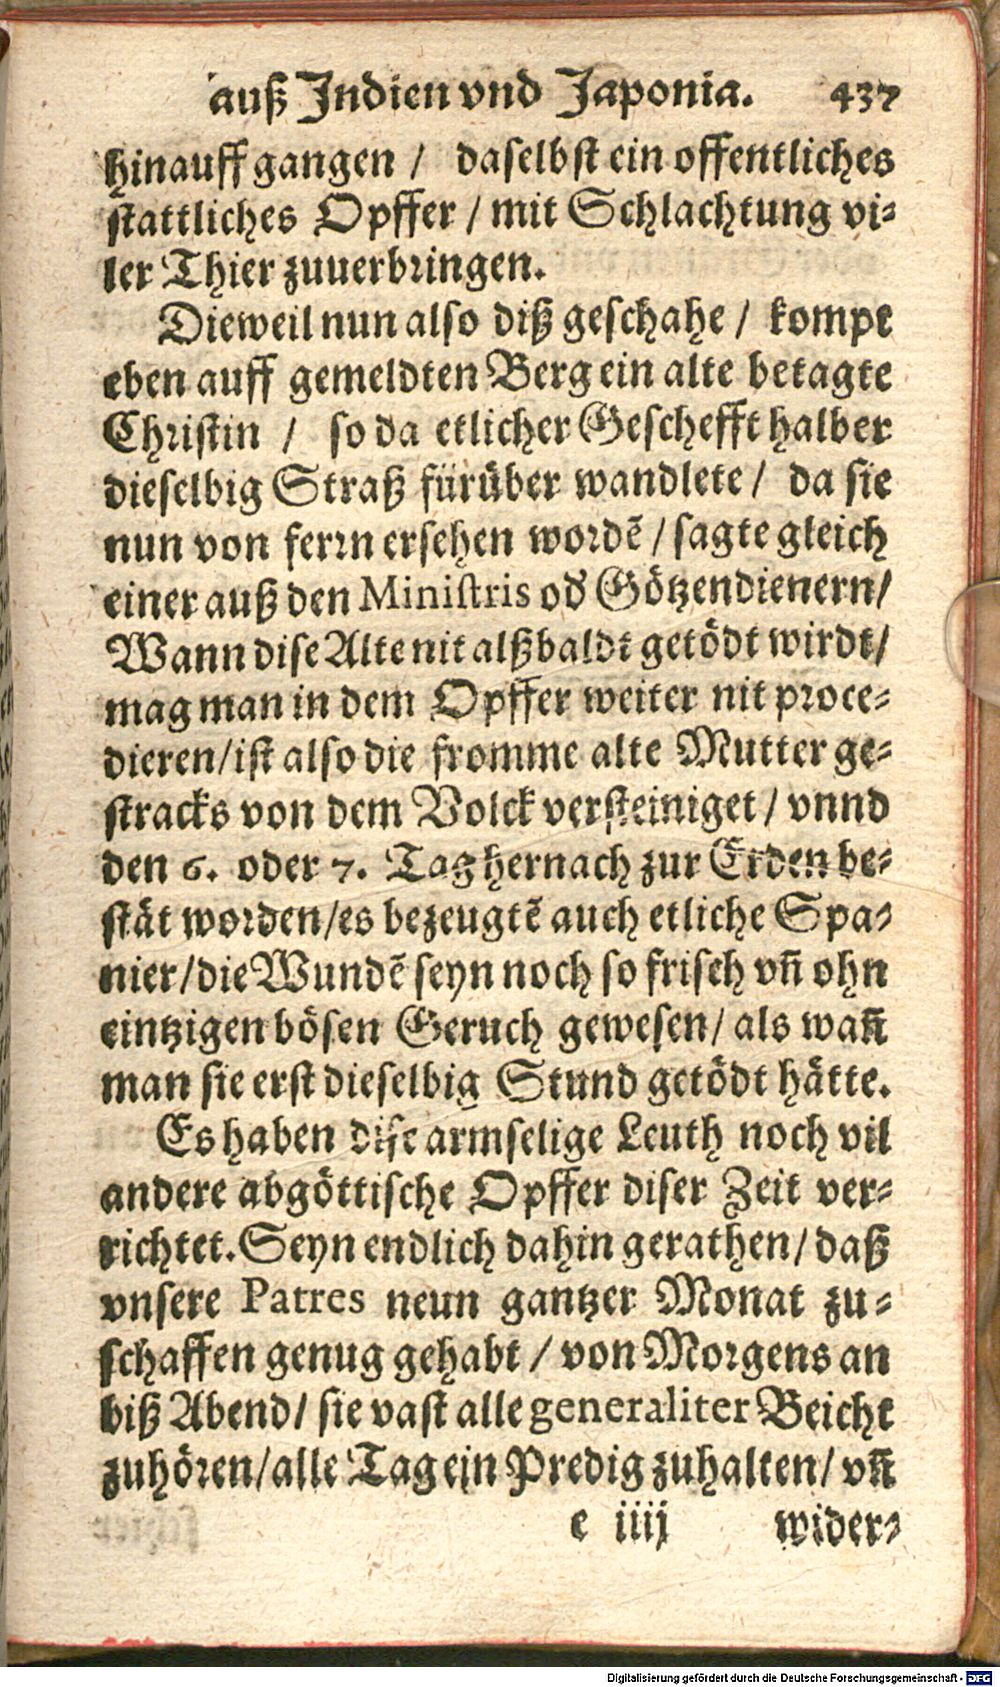 auß Indien vnd Japonia. 437
hinauff gangen / daselbst ein offentliches
stattliches Opffer / mit Schlachtung vi-
ler Thier zuuerbringen.
Dieweil nun also diß geschahe / kompt
eben auff gemeldten Berg ein alte betagte
Christin / so da etlicher Geschefft halber
dieselbig Straß fürüber wandlete / da sie
nun von ferrn ersehen wordẽ / sagte gleich
einer auß den Ministris od' Götzendienern/
Wann dise Alte nit alßbaldt getödt wirdt/
mag man in dem Opffer weiter nit proce-
dieren/ist also die fromme alte Mutter ge-
stracks von dem Volck versteiniget / vnnd
den 6. oder 7. Tag hernach zur Erden be-
stät worden/es bezeugtẽ auch etliche Spa-
nier/die Wundẽ seyn noch so frisch vñ ohn
eintzigen bösen Geruch gewesen/ als wañ
man sie erst dieselbig Stund getödt hätte.
Es haben dise armselige Leuth noch vil
andere abgöttische Opffer diser Zeit ver-
richtet. Seyn endlich dahin gerathen/ daß
vnsere Patres neun gantzer Monat zu-
schaffen genug gehabt / von Morgens an
biß Abend/ sie vast alle generaliter Beicht
zuhören/alle Tag ein Predig zuhalten/ vñ
e iiij wider-
Digitalisierung gefördert durch die Deutsche Forschungsgemeinschaft - DFG